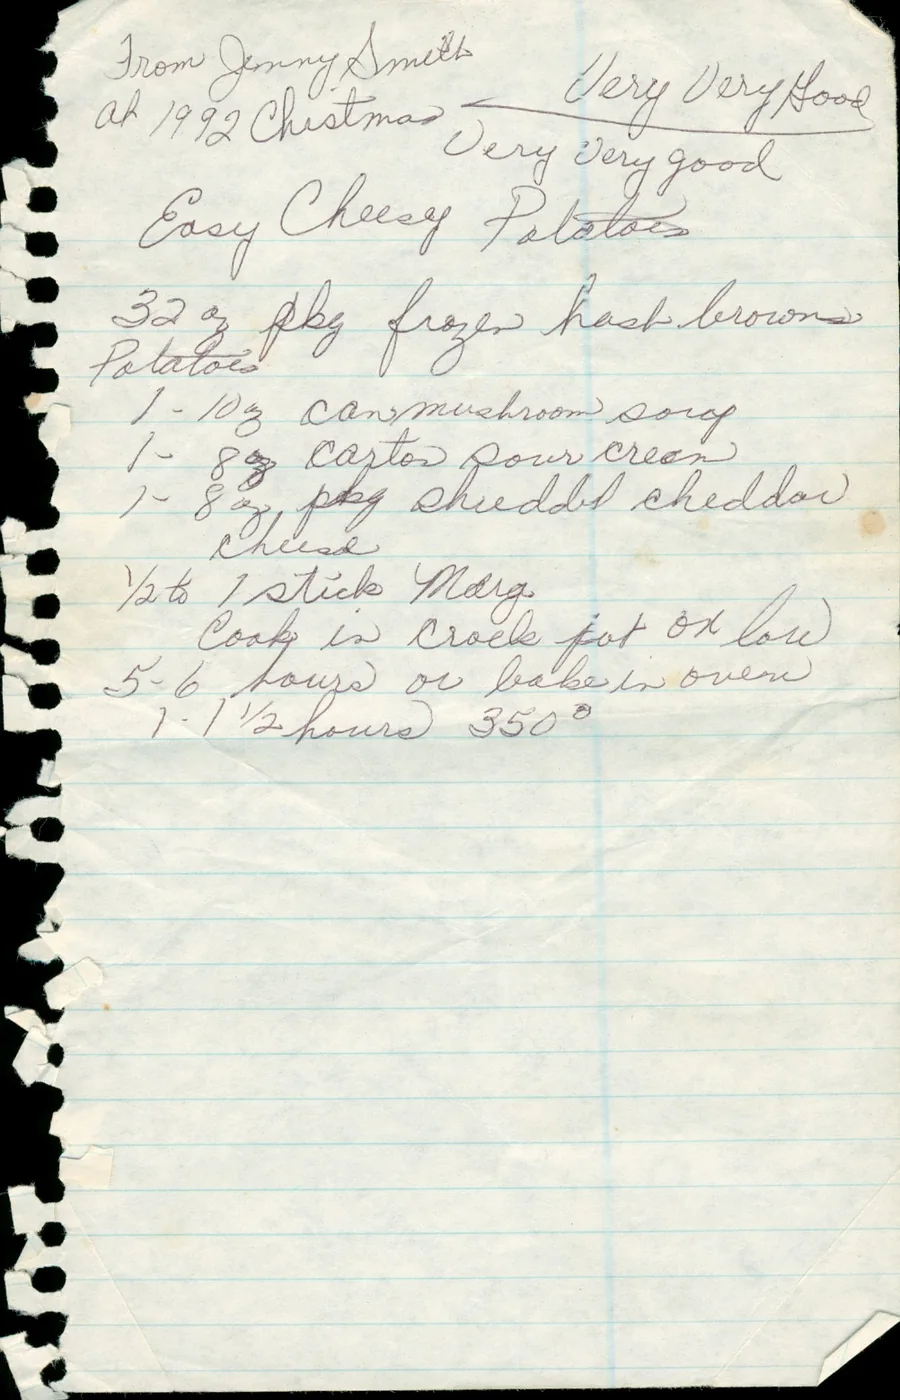 From Jenny Smith
at 1992 Chistmas
Very Very Good
Very Very good
Easy Cheesy Potatoes
32 oz pkg frozen hash browns
Potatoes
1 - 10 oz can mushroom soup
1 - 8 oz carton sour cream
1 - 8 oz pkg shreddd cheddar
cheese
1/2 to 1 stick Marg
Cook in crock pot on low
5-6 hours or bake in oven
1 - 1 1/2 hours 350°